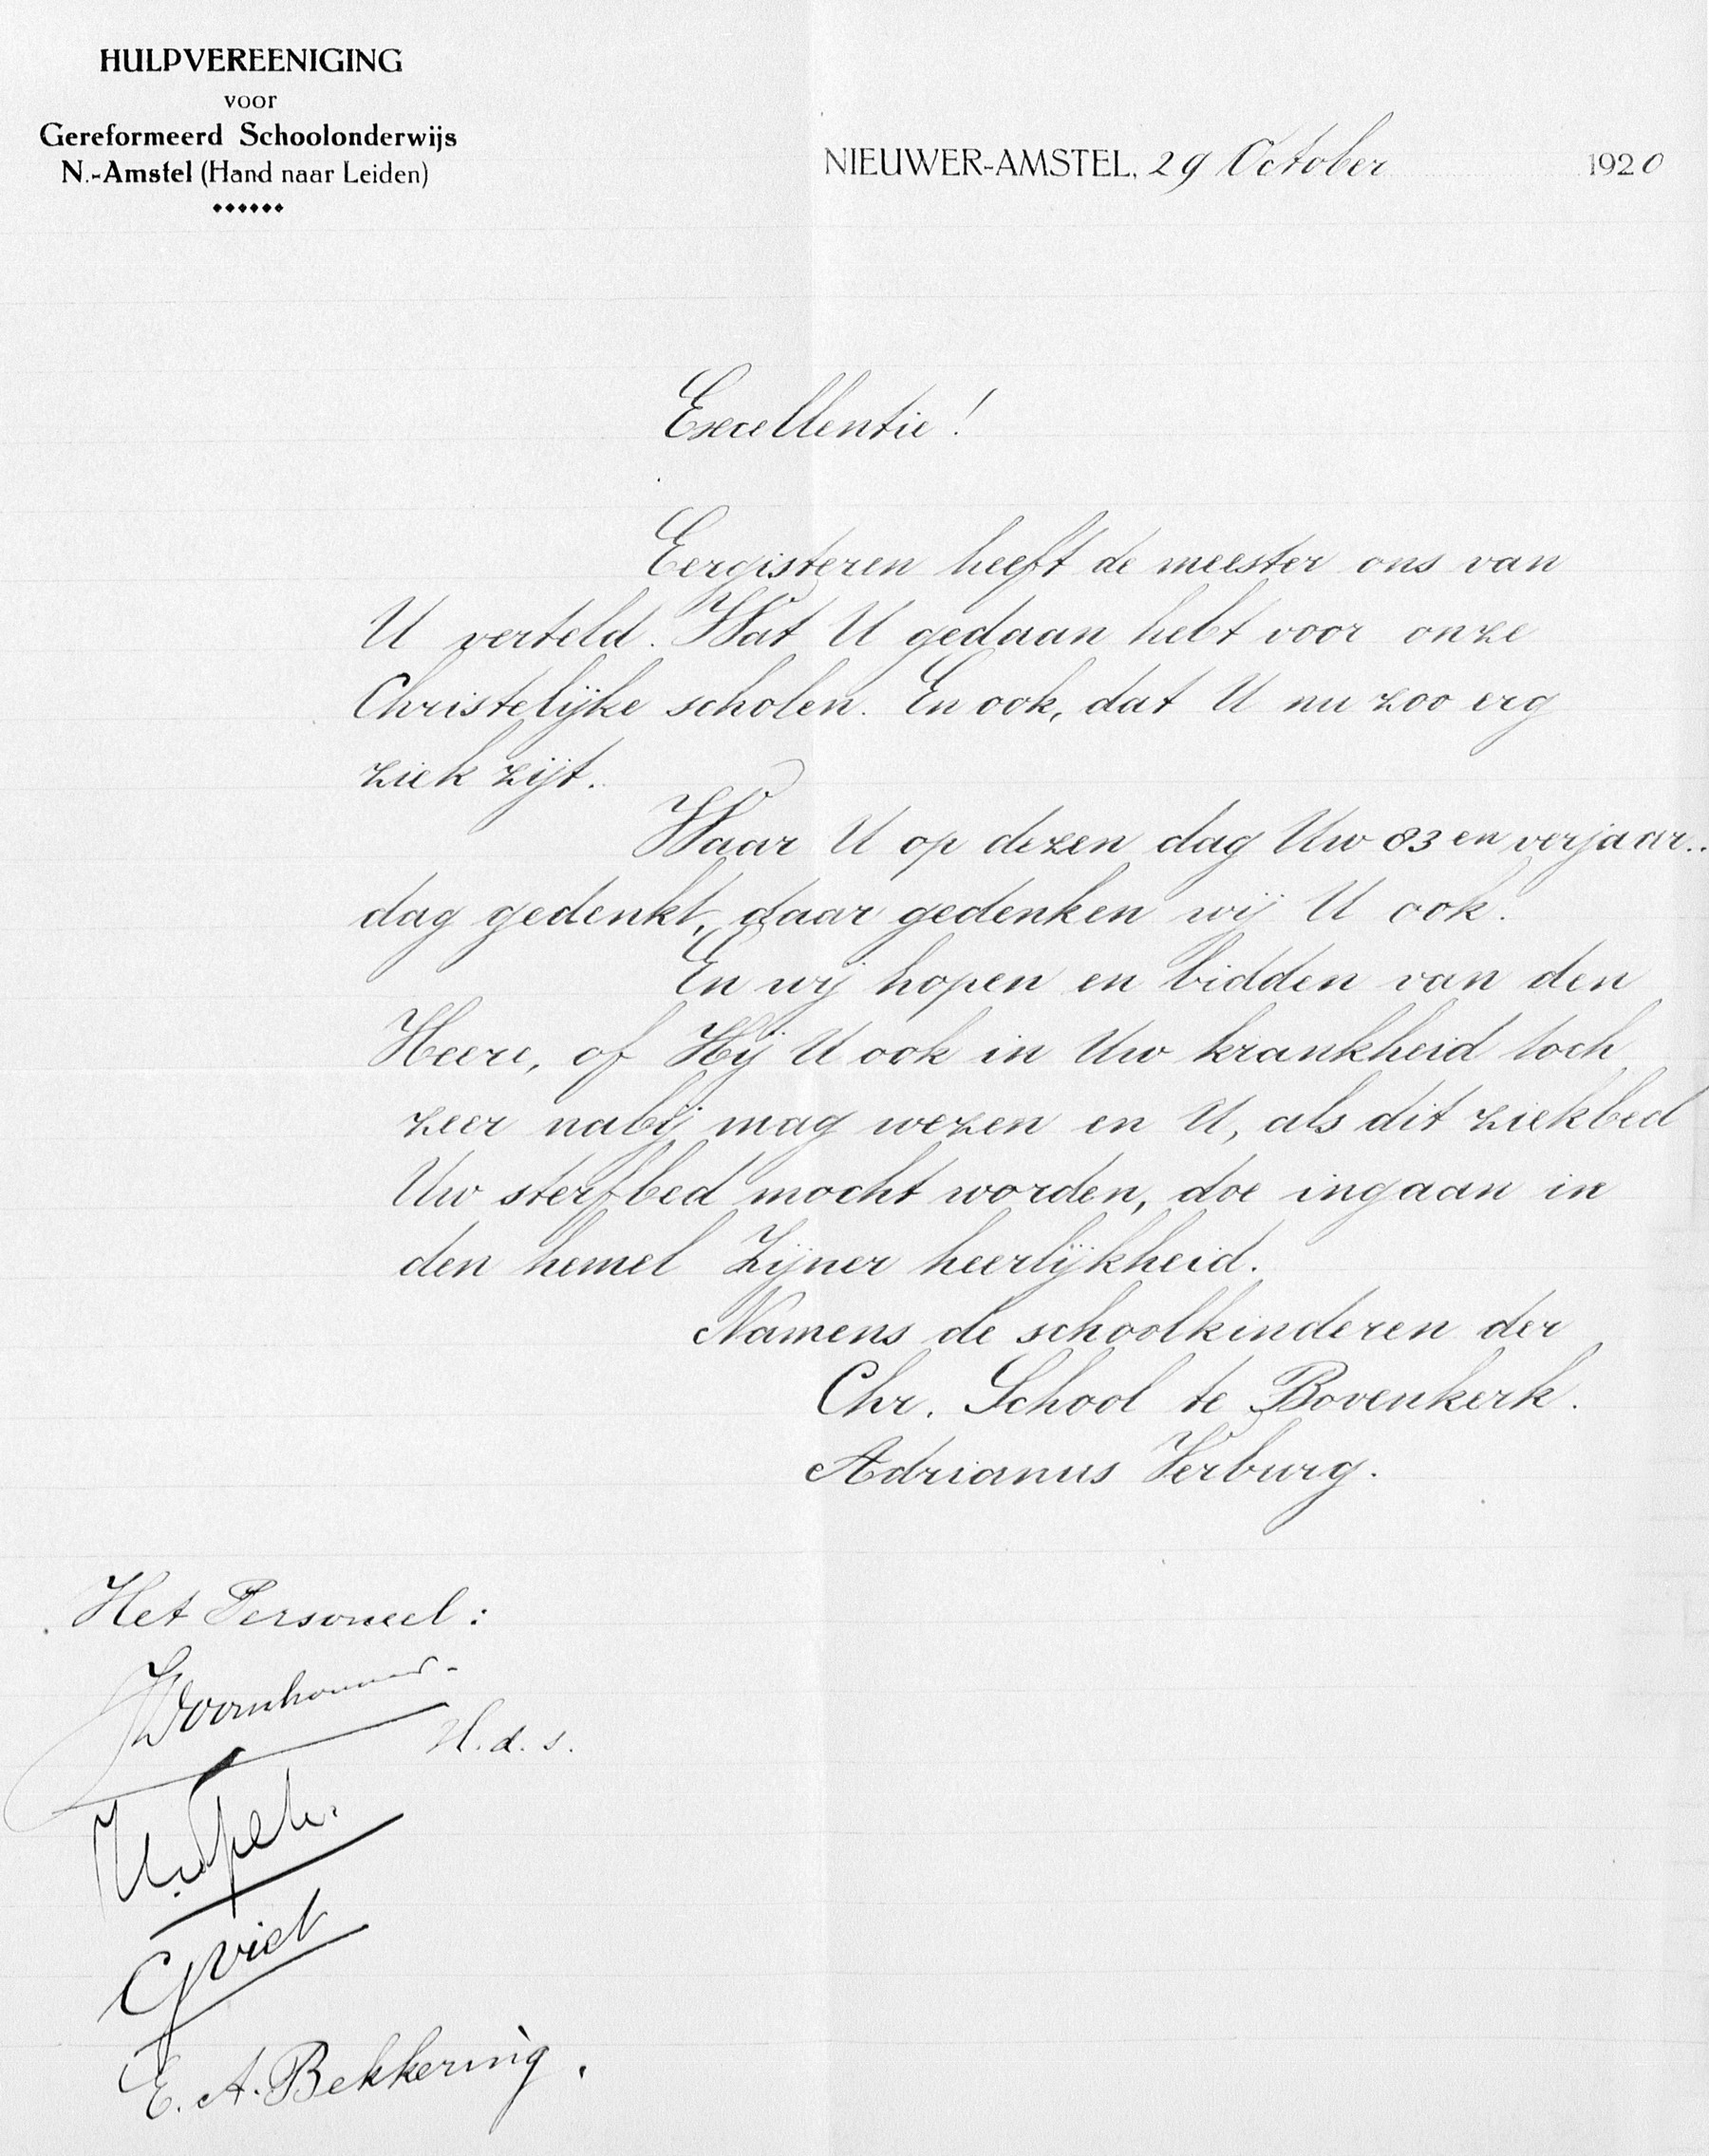 HULPVEREENIGING
VOOR
Gereformeerd Schoolonderwijs
N.-Amstel (Hand naar Leiden)
NIEUWER-AMSTEL, 29 October 1920
Excellentie!
Eergisteren heeft de meester ons van
U verteld. Wat U gedaan hebt voor onze
Christelijke scholen. En ook, dat U nu zoo erg
ziek zijt.
Waar U op dezen dag Uw 83en verjaar..
dag gedenkt, daar gedenken wij U ook.
En wij hopen en bidden van den
Heere, of Hij U ook in Uw krankheid toch
zeer nabij mag wezen en U, als dit ziekbed
Uw sterfbed mocht worden, doe ingaan in
den hemel Zijner heerlijkheid.
Namens de schoolkinderen der
Chr. School te Bovenkerk.
Adrianus Verburg.
Het Personeel:
H.d.s.
E. A. Bekkering.